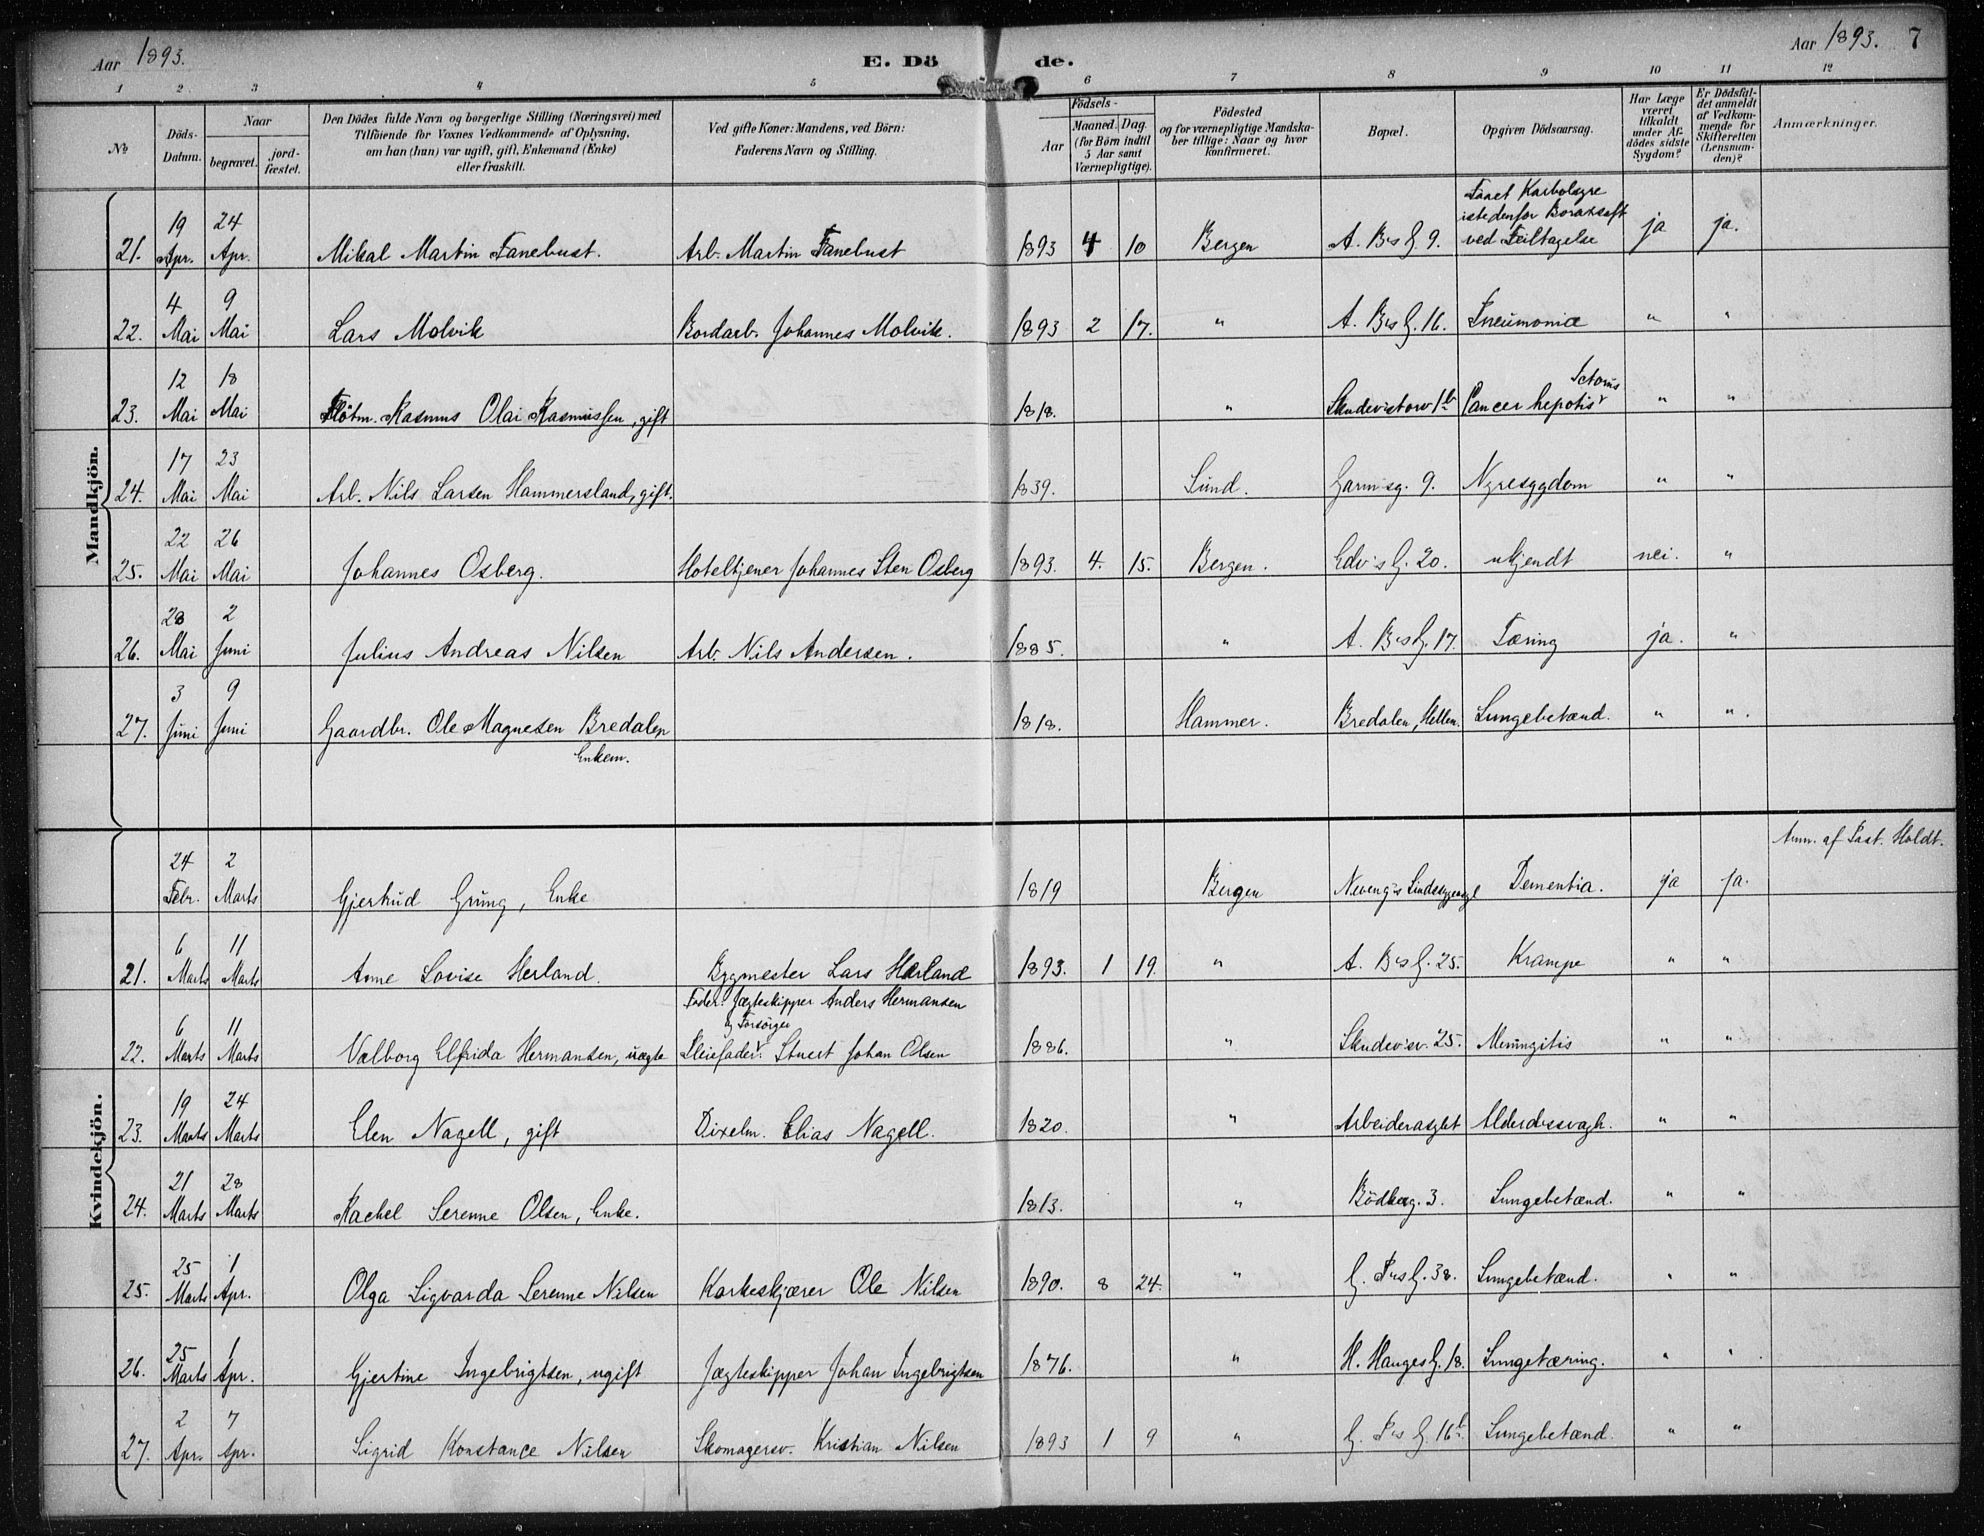 Aar 1893.
E. Dö de.
Aar 1893. 7
1 2 3 4 5 6 7 8 9 10 11 12
No
Döds-Datum.
Naar
begravet.
jord-fæstet.
Den Dödes fulde Navn og borgerlige Stilling (Næringsvei) med
Tilföiende for Voxnes Vedkommende af Oplysning,
om han (hun) var ugift, gift, Enkemand (Enke)
eller fraskilt.
Ved gifte Koner: Mandens, ved Börn:
Faderens Navn og Stilling.
Födsels-
Aar
Maaned. Dag.
(for Börn indtil
5 Aar samt
Værnepligtige).
Födested
og for værnepligtige Mandska-
ber tillige: Naar og hvor
konfirmeret.
Bopæl.
Opgiven Dödsaarsag.
Har Læge
været
tilkaldt
under Af-
dödes sidste
Sygdom?
Er Dödsfal-
det anmeldt
af Vedkom-
mende for
Skifteretten
(Lensman-
den)?
Anmærkninger.
Mandkjön.
21. 19 Apr. 24 Apr. Mikal Martin Fanebust. Arb. Martin Fanebust 1893 4 10 Bergen A. Bs G. 9. Faaet Karbolsyre istedenfor Boraxsaft ved Feiltagelse ja ja.
22. 4 Mai 9 Mai Lars Molvik Bordarb. Johannes Molvik. 1893 2 17. " A. Bs G. 16. Pneumonie " "
23. 12 Mai 18 Mai Flötm. Rasmus Olai Rasmussen, gift 1818. " Skudevistorv 1b Cancer hepatis Icterus " "
24. 17 Mai 23 Mai Arb. Nils Larsen Hammersland, gift. 1839. Sund. Garmsg. 9. Nyresygdom " "
25. 22 Mai 26 Mai Johannes Osberg. Hoteltjener Johannes Sten Osberg 1893. 4. 15. Bergen. Edv's G. 20. ukjendt nei. "
26. 28 Mai 2 Juni Julius Andreas Nilsen Arb. Nils Andersen. 1885. " A. Bs G. 17. Tæring ja. "
27. 3 Juni 9 Juni Gaardbr. Ole Magnesen Bredalen Enkem. 1818. Hammer. Bredalen, Hellen. Lungebetænd. " ".
Kvindekjön.
24 Febr. 2 Marts Gjertrud Grung, Enke 1819 Bergen Neveng's Sindssygeasyl Dementia. ja ja. Anm. af Past. Holdt.
21. 6 Marts 11 Marts Anne Lovise Herland. Bygmester Lars Herland 1893. 1 19. " A. Bs G. 25. Krampe " "
22. 6 Marts 11 Marts Valborg Elfrida Hermansen, uægte Fader: Jægteskipper Anders Hermansen Pleiefader og Forsörger: Stuert Johan Olsen 1886. " Skudev'sv. 25. Meningitis " "
23. 19 Marts 24 Marts Elen Nagell, gift Dixelm. Elias Nagell. 1820. " Arbeiderasylet Alderdssvagh. " "
24. 21 Marts 28 Marts Rachel Serenne Olsen, Enke. 1813. " Bödkerg. 3. Lungebetænd. " "
25. 25 Marts 1 Apr. Olga Sigvarda Serenne Nilsen Korkeskjærer Ole Nilsen 1890. 8 24. " G. Ps G. 38. Lungebetænd. " "
26. 25 Marts 1 Apr. Gjertine Ingebrigtsen, ugift Jægteskipper Johan Ingebrigtsen 1876. " H. Hauges G. 18. Lungetæring. " "
27. 2 Apr. 7 Apr. Sigrid Konstance Nilsen Skomagersv. Kristian Nilsen 1893 1 9 " G. Ps G. 16b. Lungebetænd. " "